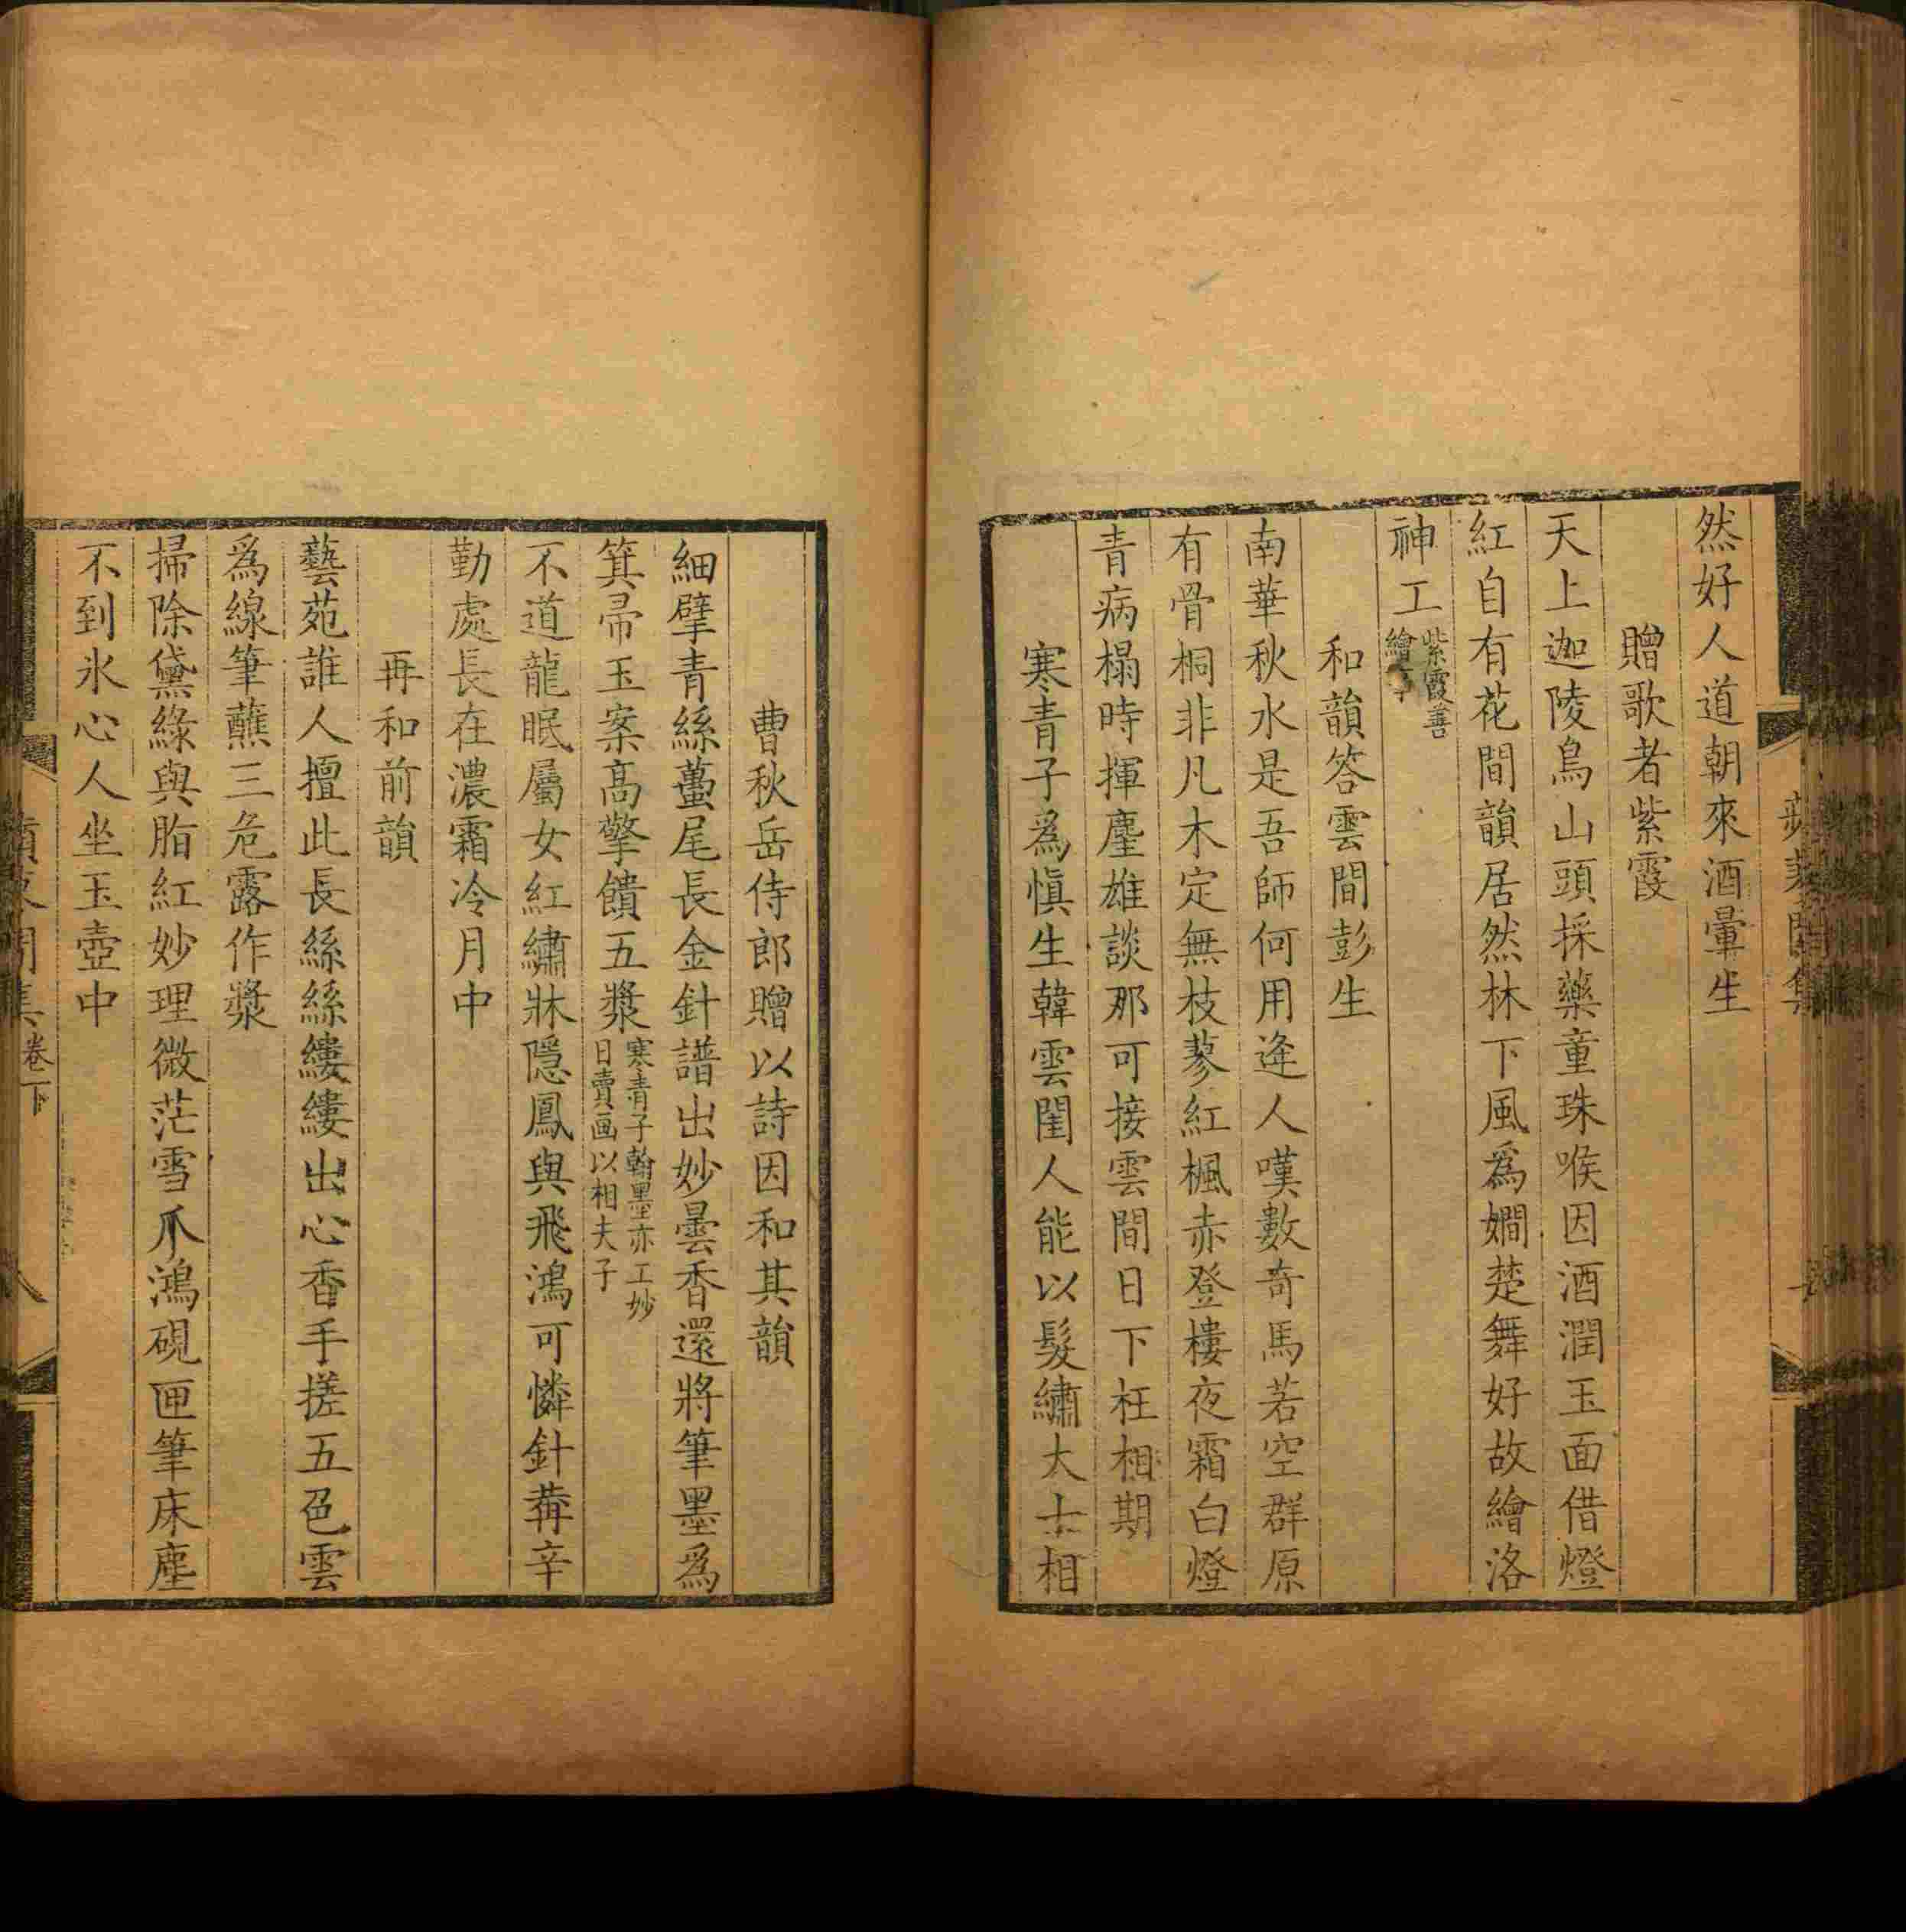 然好人道朝來酒暈生
贈歌者紫霞
天上迦陵鳥山頭採藥童珠喉因酒潤玉面借燈
紅自有花間韻居然林下風爲嫺楚舞好故繪洛
神工
紫霞善
繪事
和韻答雲間彭生
南華秋水是吾師何用逢人嘆數奇馬若空群原
有骨桐非凡木定無枝蓼紅楓赤登樓夜霜白燈
青病榻時揮麈雄談那可接雲間日下枉相期
寒青子爲愼生韓雲閨人能以髮繡大士相
曹秋岳侍郎贈以詩因和其韻
細擘青絲蠆尾長金針譜出妙曇香還將筆墨爲
箕帚玉案高擎饋五漿
寒青子翰墨亦工妙
日賣画以相夫子
不道龍眠屬女紅繡牀隱鳳與飛鴻可憐針黹辛
勤處長在濃霜冷月中
再和前韻
藝苑誰人擅此長絲絲縷縷出心香手搓五色雲
爲線筆蘸三危露作漿
掃除黛綠與脂紅妙理微茫雪爪鴻硯匣筆床塵
不到氷心人坐玉壺中
卷下